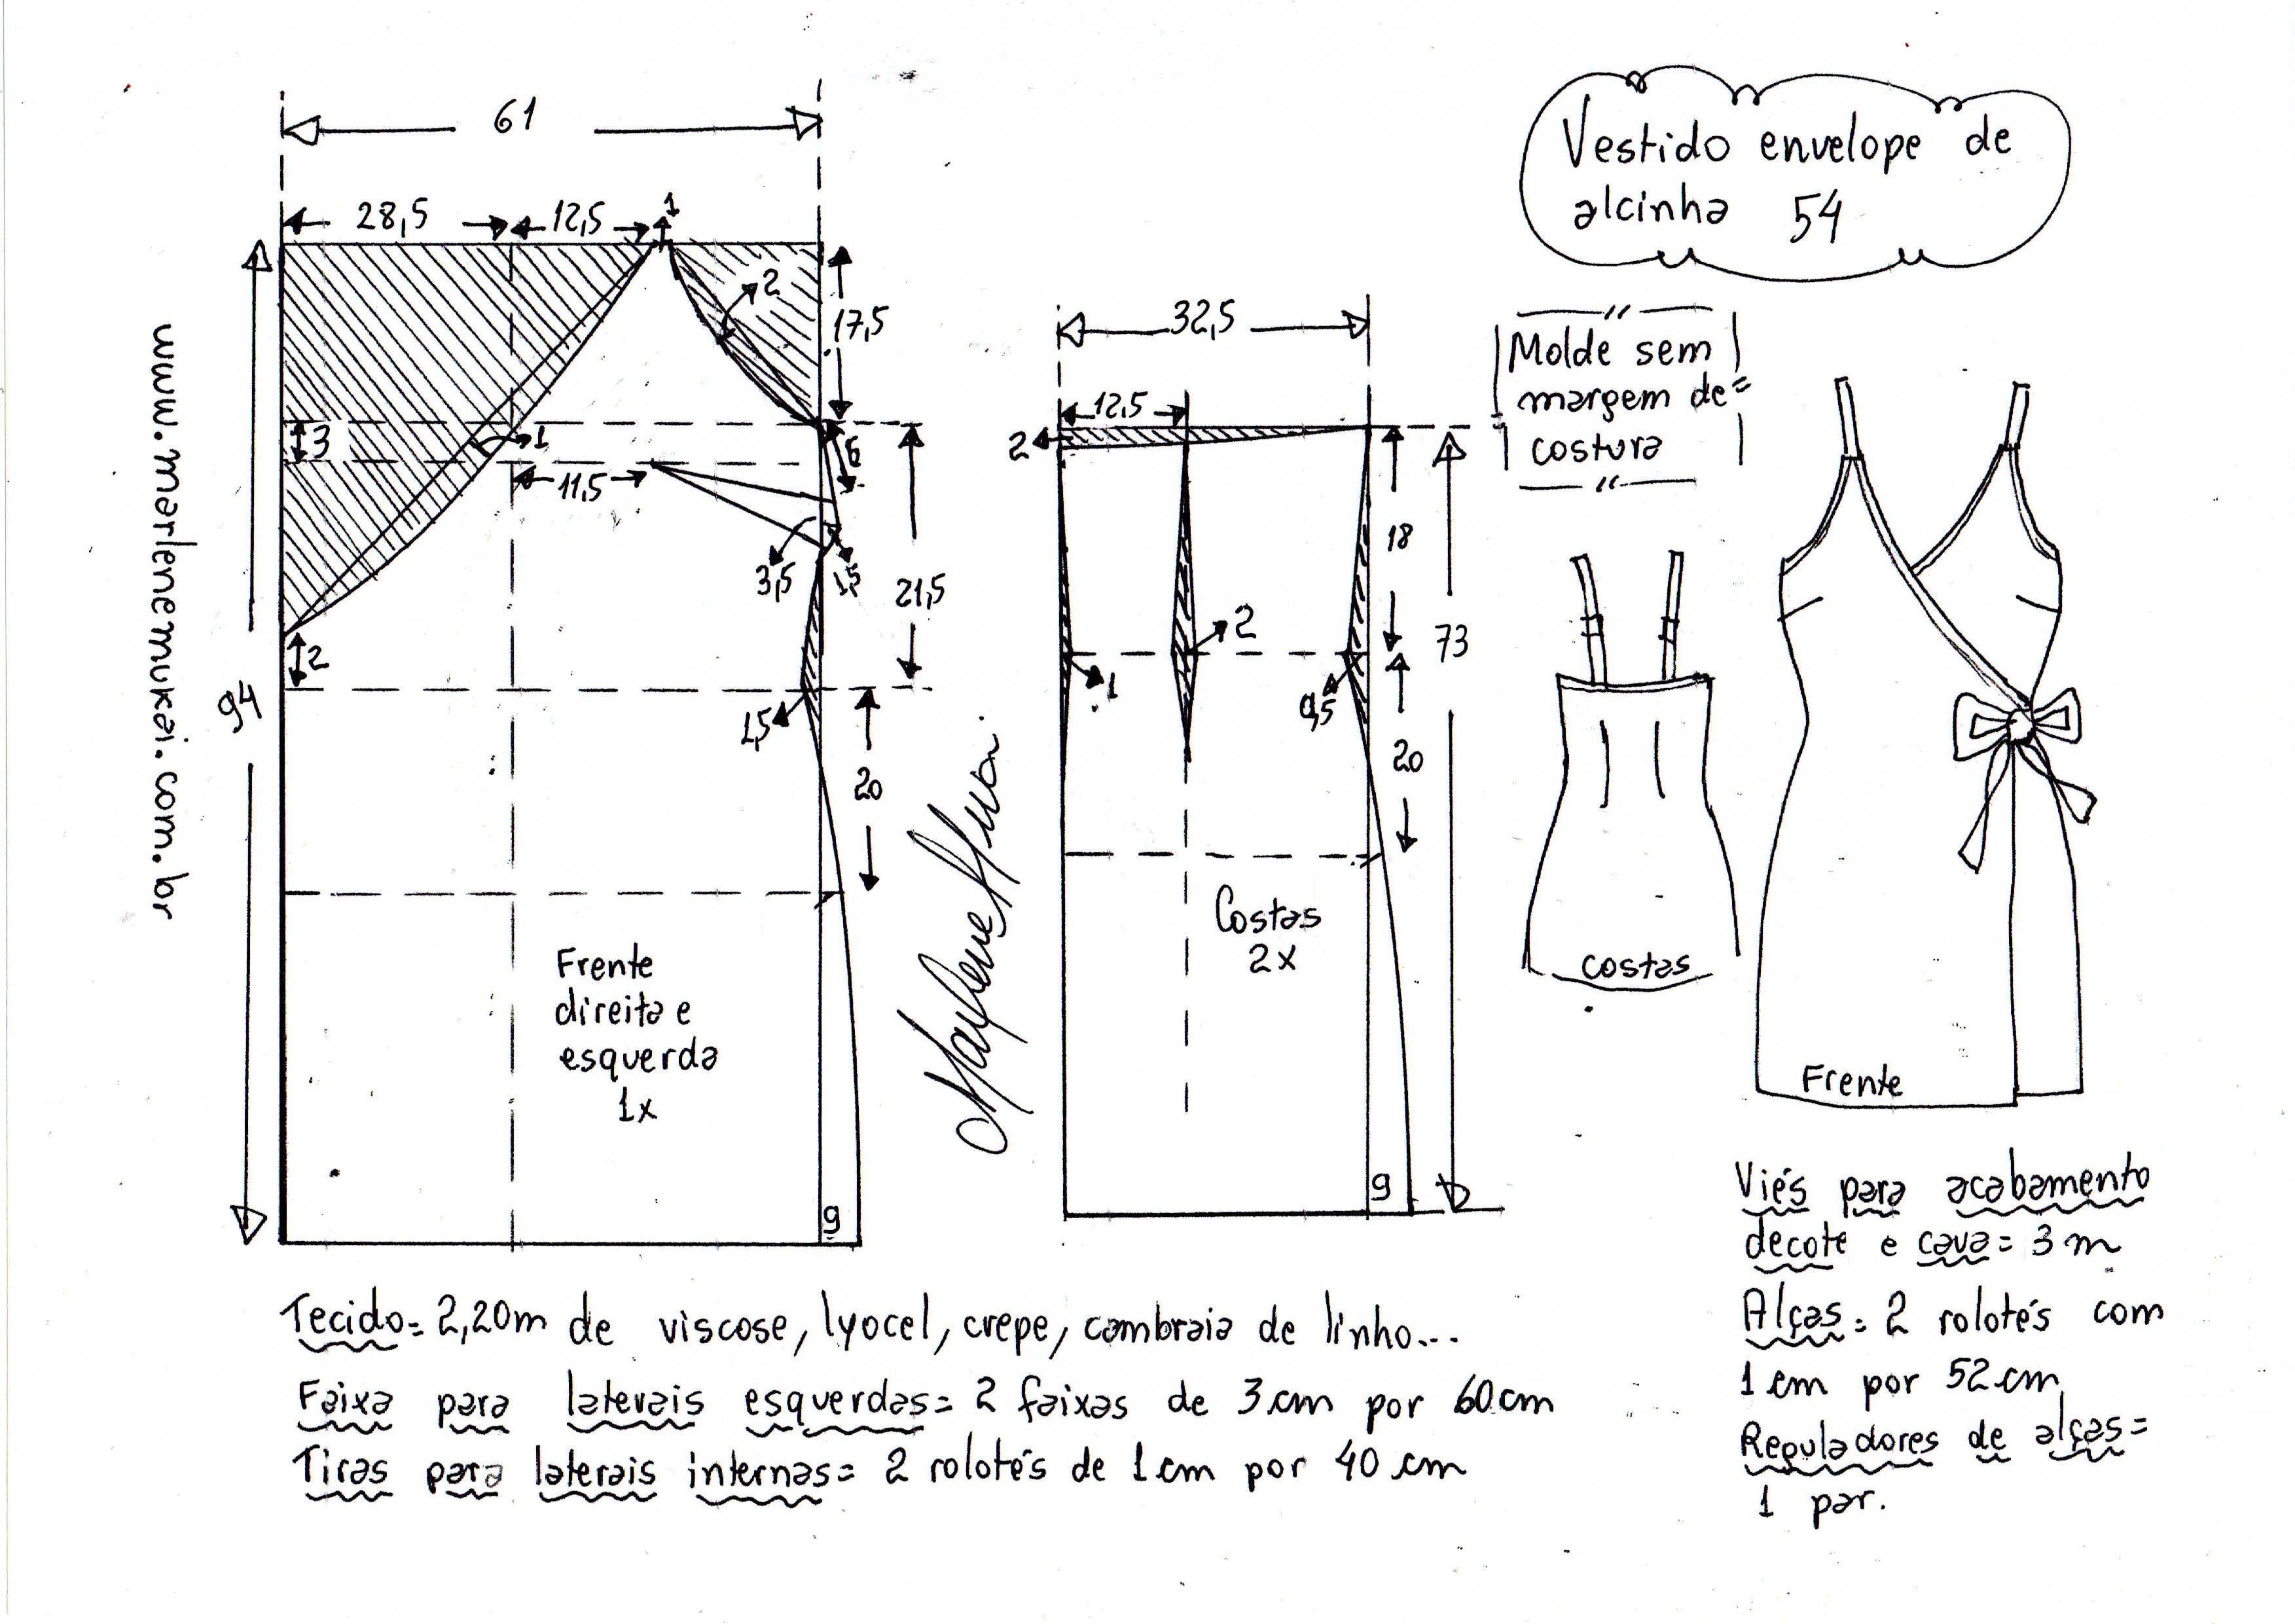 Vestido envelope de
alcinha 54
Molde sem
margem de
costura
www.marlenemukai.com.br
61
28,5
12,5
1
2
17,5
3
1
11,5
6
3,5
1,5
21,5
2
94
1,5
20
Frente
direita e
esquerda
1x
9
32,5
12,5
2
18
73
2
1
0,5
20
Costas
2x
9
costas
Frente
Tecido= 2,20m de viscose, lyocel, crepe, cambraia de linho...
Faixa para laterais esquerdas= 2 faixas de 3cm por 60cm
Tiras para laterais internas= 2 rolotés de 1cm por 40 cm
Viés para acabamento
decote e cava= 3m
Alças= 2 rolotés com
1 cm por 52cm
Reguladores de alças=
1 par.